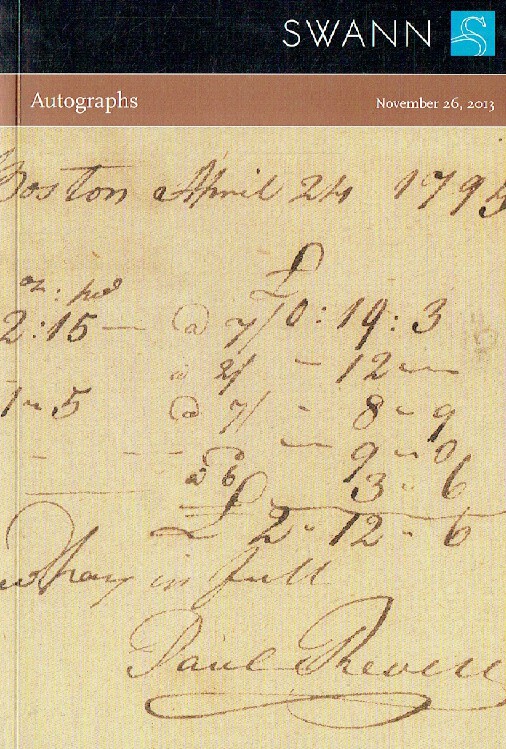 SWANN
Autographs November 26, 2013
Boston April 24 179
£
oz: pwt
2:15 — @ 7/ 0:19:3
@ 2/ - 12 —
1 ~ 5 @ 7/ - 8 - 9
- - — 9 - 0
@ 6 3 - 6
£ 2 - 12 - 6
in full
Paul Revere